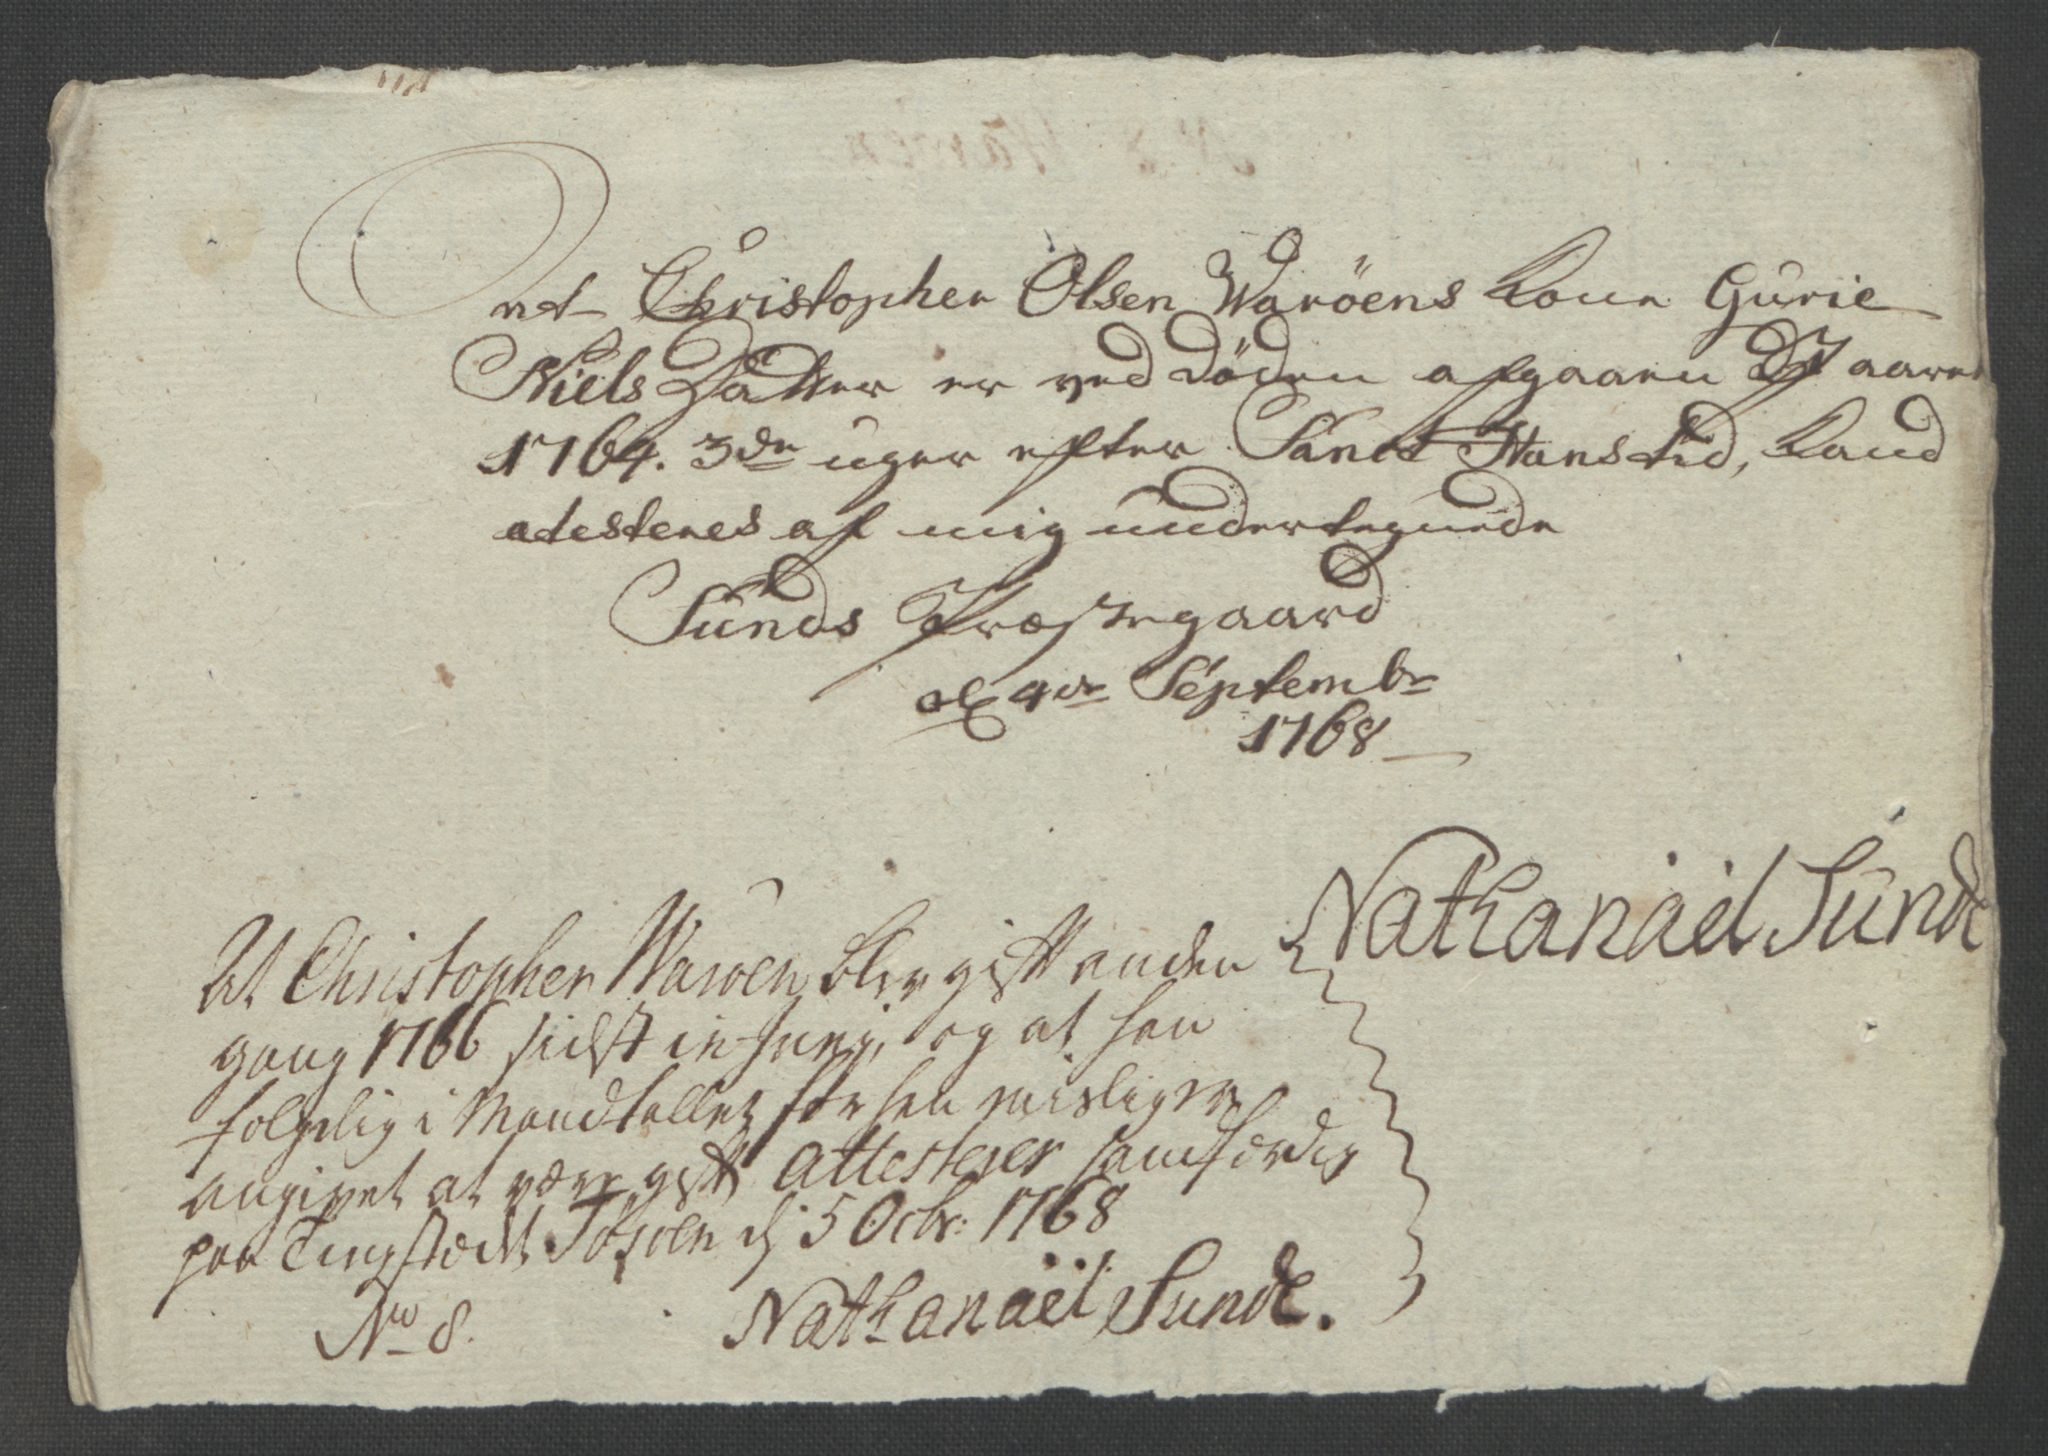 At Christopher Olsen Waröens Kone Gurie
Niels Datter er ved Döden afgaaen I aaret
1764. 3de uger efter Sanct Hans tid, Kand
atesteres af mig undertegnede
Sunds Præstegaard
d 4de Septembr
1768
Nathanaël Sunde
At Christopher Waroen blev gift anden
gang 1766 sidst in Junij, og at han
følgelig i Mandtallet før hen misligen
angivet at være gift Attesterer sandfærdig
paa Tingstædet d 5 Octbr: 1768
No 8. Nathanaël Sunde.